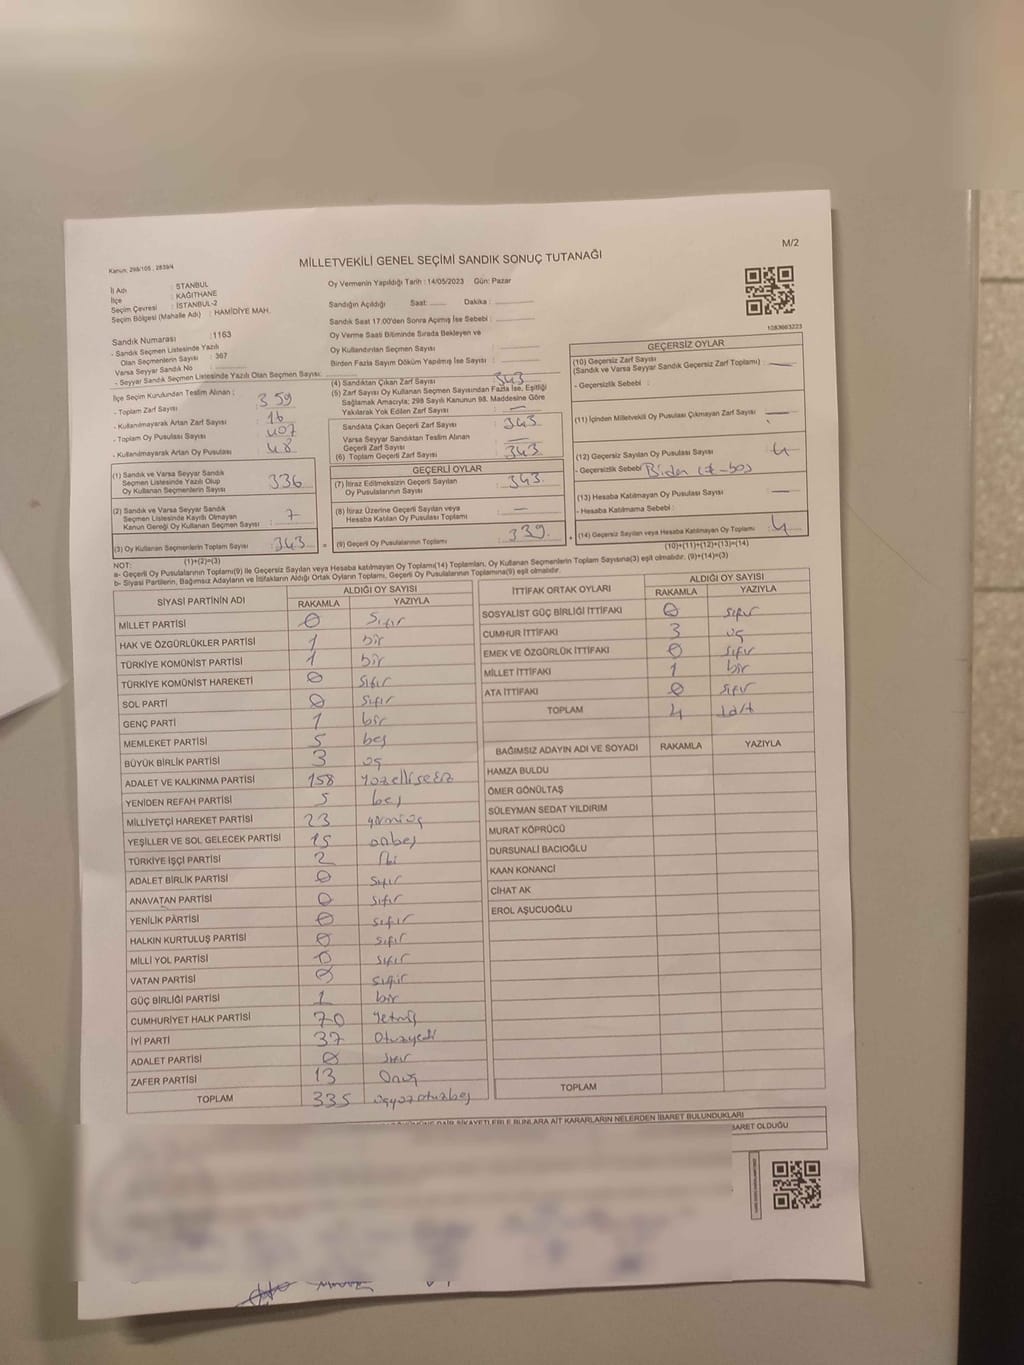 M/2
Kanun: 298/105, 2839/4
MİLLETVEKİLİ GENEL SEÇİMİ SANDIK SONUÇ TUTANAĞI
İl Adı : İSTANBUL
İlçe : KAĞITHANE
Seçim Çevresi : İSTANBUL-2
Seçim Bölgesi (Mahalle Adı) : HAMİDİYE MAH.
Sandık Numarası :1163
- Sandık Seçmen Listesinde Yazılı
Olan Seçmenlerin Sayısı : 367
Varsa Seyyar Sandık No :
- Seyyar Sandık Seçmen Listesinde Yazılı Olan Seçmen Sayısı:
İlçe Seçim Kurulundan Teslim Alınan ;
- Toplam Zarf Sayısı 359
- Kullanılmayarak Artan Zarf Sayısı : 16
- Toplam Oy Pusulası Sayısı : 407
- Kullanılmayarak Artan Oy Pusulası : 48
(1) Sandık ve Varsa Seyyar Sandık
Seçmen Listesinde Yazılı Olup
Oy Kullanan Seçmenlerin Sayısı : 336
(2) Sandık ve Varsa Seyyar Sandık
Seçmen Listesinde Kayıtlı Olmayan
Kanun Gereği Oy Kullanan Seçmen Sayısı : 7
(3) Oy Kullanan Seçmenlerin Toplam Sayısı : 343
(1)+(2)=(3)
Oy Vermenin Yapıldığı Tarih : 14/05/2023 Gün: Pazar
Sandığın Açıldığı Saat: Dakika :
Sandık Saat 17.00'den Sonra Açılmış İse Sebebi :
Oy Verme Saati Bitiminde Sırada Bekleyen ve
Oy Kullandırılan Seçmen Sayısı :
Birden Fazla Sayım Döküm Yapılmış İse Sayısı :
(4) Sandıktan Çıkan Zarf Sayısı : 343
(5) Zarf Sayısı Oy Kullanan Seçmen Sayısından Fazla İse, Eşitliği
Sağlamak Amacıyla; 298 Sayılı Kanunun 98. Maddesine Göre
Yakılarak Yok Edilen Zarf Sayısı : —
Sandıkta Çıkan Geçerli Zarf Sayısı : 343
Varsa Seyyar Sandıktan Teslim Alınan
Geçerli Zarf Sayısı : —
(6) Toplam Geçerli Zarf Sayısı : 343
GEÇERLİ OYLAR
(7) İtiraz Edilmeksizin Geçerli Sayılan
Oy Pusulalarının Sayısı : 343
(8) İtiraz Üzerine Geçerli Sayılan veya
Hesaba Katılan Oy Pusulası Toplamı : —
= (9) Geçerli Oy Pusulalarının Toplamı : 339
1083663223
GEÇERSİZ OYLAR
(10) Geçersiz Zarf Sayısı
(Sandık ve Varsa Seyyar Sandık Geçersiz Zarf Toplamı) : —
- Geçersizlik Sebebi :
(11) İçinden Milletvekili Oy Pusulası Çıkmayan Zarf Sayısı : —
(12) Geçersiz Sayılan Oy Pusulası Sayısı : 4
- Geçersizlik Sebebi : Birden
(13) Hesaba Katılmayan Oy Pusulası Sayısı : —
- Hesaba Katılmama Sebebi :
+ (14) Geçersiz Sayılan veya Hesaba Katılmayan Oy Toplamı : 4
(10)+(11)+(12)+(13)=(14)
NOT:
a- Geçerli Oy Pusulalarının Toplamı(9) ile Geçersiz Sayılan veya Hesaba katılmayan Oy Toplamı(14) Toplamları, Oy Kullanan Seçmenlerin Toplam Sayısına(3) eşit olmalıdır. (9)+(14)=(3)
b- Siyasi Partilerin, Bağımsız Adayların ve İttifakların Aldığı Ortak Oyların Toplamı, Geçerli Oy Pusulalarının Toplamına(9) eşit olmalıdır.
SİYASİ PARTİNİN ADI ALDIĞI OY SAYISI
RAKAMLA YAZIYLA
MİLLET PARTİSİ 0 Sıfır
HAK VE ÖZGÜRLÜKLER PARTİSİ 1 bir
TÜRKİYE KOMÜNİST PARTİSİ 1 bir
TÜRKİYE KOMÜNİST HAREKETİ 0 sıfır
SOL PARTİ 0 sıfır
GENÇ PARTİ 1 bir
MEMLEKET PARTİSİ 5 beş
BÜYÜK BİRLİK PARTİSİ 3 üç
ADALET VE KALKINMA PARTİSİ 158 yüzellisekiz
YENİDEN REFAH PARTİSİ 5 beş
MİLLİYETÇİ HAREKET PARTİSİ 23 yirmiüç
YEŞİLLER VE SOL GELECEK PARTİSİ 15 onbeş
TÜRKİYE İŞÇİ PARTİSİ 2 iki
ADALET BİRLİK PARTİSİ 0 sıfır
ANAVATAN PARTİSİ 0 sıfır
YENİLİK PARTİSİ 0 sıfır
HALKIN KURTULUŞ PARTİSİ 0 sıfır
MİLLİ YOL PARTİSİ 0 sıfır
VATAN PARTİSİ 0 sıfır
GÜÇ BİRLİĞİ PARTİSİ 1 bir
CUMHURİYET HALK PARTİSİ 70 Yetmiş
İYİ PARTİ 37 Otuzyedi
ADALET PARTİSİ 0 sıfır
ZAFER PARTİSİ 13 Onüç
TOPLAM 335 üçyüzotuzbeş
İTTİFAK ORTAK OYLARI ALDIĞI OY SAYISI
RAKAMLA YAZIYLA
SOSYALİST GÜÇ BİRLİĞİ İTTİFAKI 0 sıfır
CUMHUR İTTİFAKI 3 üç
EMEK VE ÖZGÜRLÜK İTTİFAKI 0 sıfır
MİLLET İTTİFAKI 1 bir
ATA İTTİFAKI 0 sıfır
TOPLAM 4 dört
BAĞIMSIZ ADAYIN ADI VE SOYADI RAKAMLA YAZIYLA
HAMZA BULDU
ÖMER GÖNÜLTAŞ
SÜLEYMAN SEDAT YILDIRIM
MURAT KÖPRÜCÜ
DURSUNALİ BACIOĞLU
KAAN KONANCİ
CİHAT AK
EROL AŞUCUOĞLU
TOPLAM
ŞİKAYETLERLE BUNLARA AİT KARARLARIN NELERDEN İBARET BULUNDUKLARI
İBARET OLDUĞU